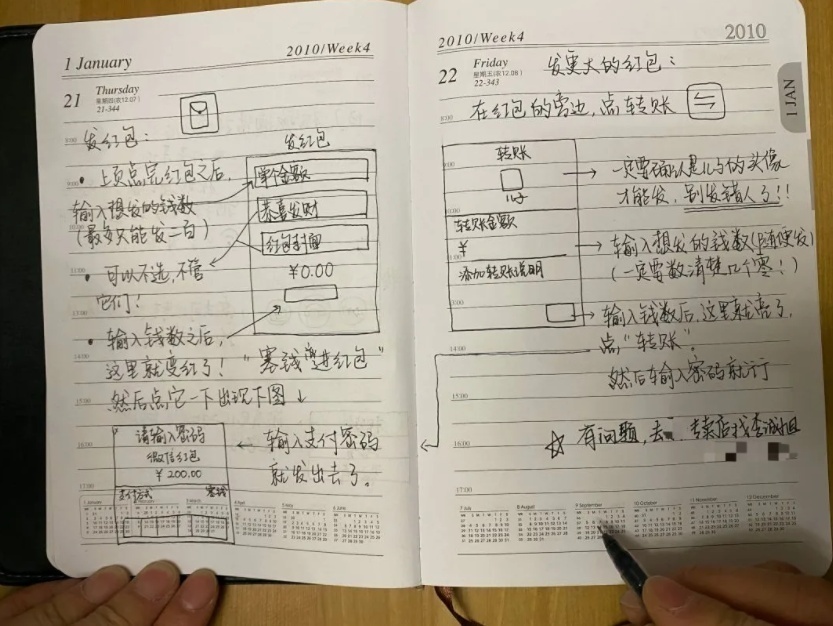 1 January
2010/Week4
21
Thursday
星期四(农12.07)
21-344
发红包:
发红包
• 上页点完红包之后,
输入想发的钱数
(最多只能发二百)
单个金额
恭喜发财
红包封面
¥0.00
• 可以不选,不管
它们!
• 输入钱数之后,
这里就变红了!“塞钱进红包”
然后点它一下出现下图↓
请输入密码
微信红包
¥200.00
支付方式
零钱
← 输入支付密码
就发出去了。
2010/Week4
2010
22
Friday
星期五(农12.08)
22-343
1 JAN
发更大的红包:
在红包的旁边,点转账
转账
儿子
转账金额
¥
添加转账说明
一定要确认是儿子的头像
才能发,别发错人了!!
输入想发的钱数(随便发)
(一定要数清楚几个零!)
输入钱数后,这里就亮了,
点,“转账”。
然后输入密码就行
☆ 有问题,去
专卖店找李诚姐